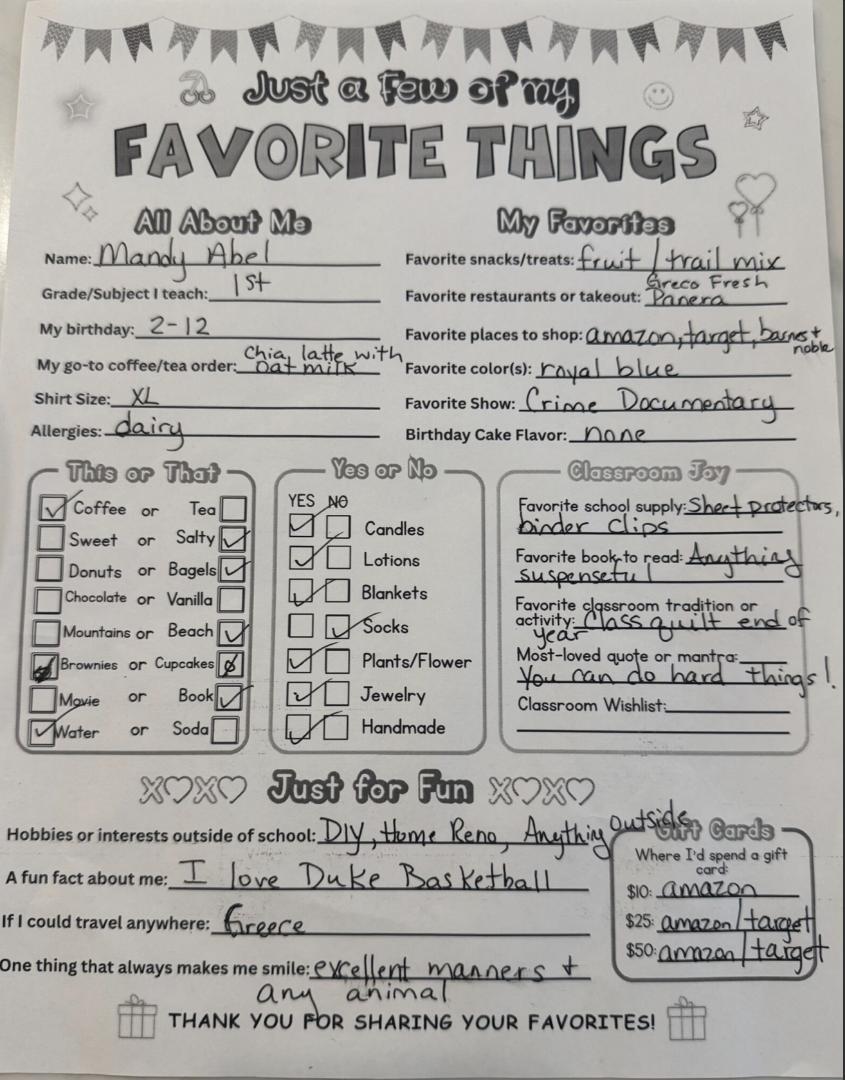 Just a Few of my
FAVORITE THINGS
All About Me
Name: Mandy Abel
Grade/Subject I teach: 1st
My birthday: 2-12
My go-to coffee/tea order: Chia latte with
oat milk
Shirt Size: XL
Allergies: dairy
My Favorites
Favorite snacks/treats: fruit / trail mix
Greco Fresh
Favorite restaurants or takeout: Panera
Favorite places to shop: amazon, target, barnes +
noble
Favorite color(s): royal blue
Favorite Show: Crime Documentary
Birthday Cake Flavor: none
This or That
Coffee or Tea
Sweet or Salty
Donuts or Bagels
Chocolate or Vanilla
Mountains or Beach
Brownies or Cupcakes
Movie or Book
Water or Soda
Yes or No
YES NO
Candles
Lotions
Blankets
Socks
Plants/Flower
Jewelry
Handmade
Classroom Joy
Favorite school supply: Sheet protectors,
binder clips
Favorite book to read: Anything
suspenseful
Favorite classroom tradition or
activity: Class quilt end of
year
Most-loved quote or mantra:
You can do hard things!
Classroom Wishlist:
XOXO Just for Fun XOXO
Hobbies or interests outside of school: DIY, Home Reno, Anything outside
A fun fact about me: I love Duke Basketball
If I could travel anywhere: Greece
One thing that always makes me smile: excellent manners +
any animal
Gift Cards
Where I'd spend a gift
card:
$10: amazon
$25: amazon/target
$50: amazon/target
THANK YOU FOR SHARING YOUR FAVORITES!